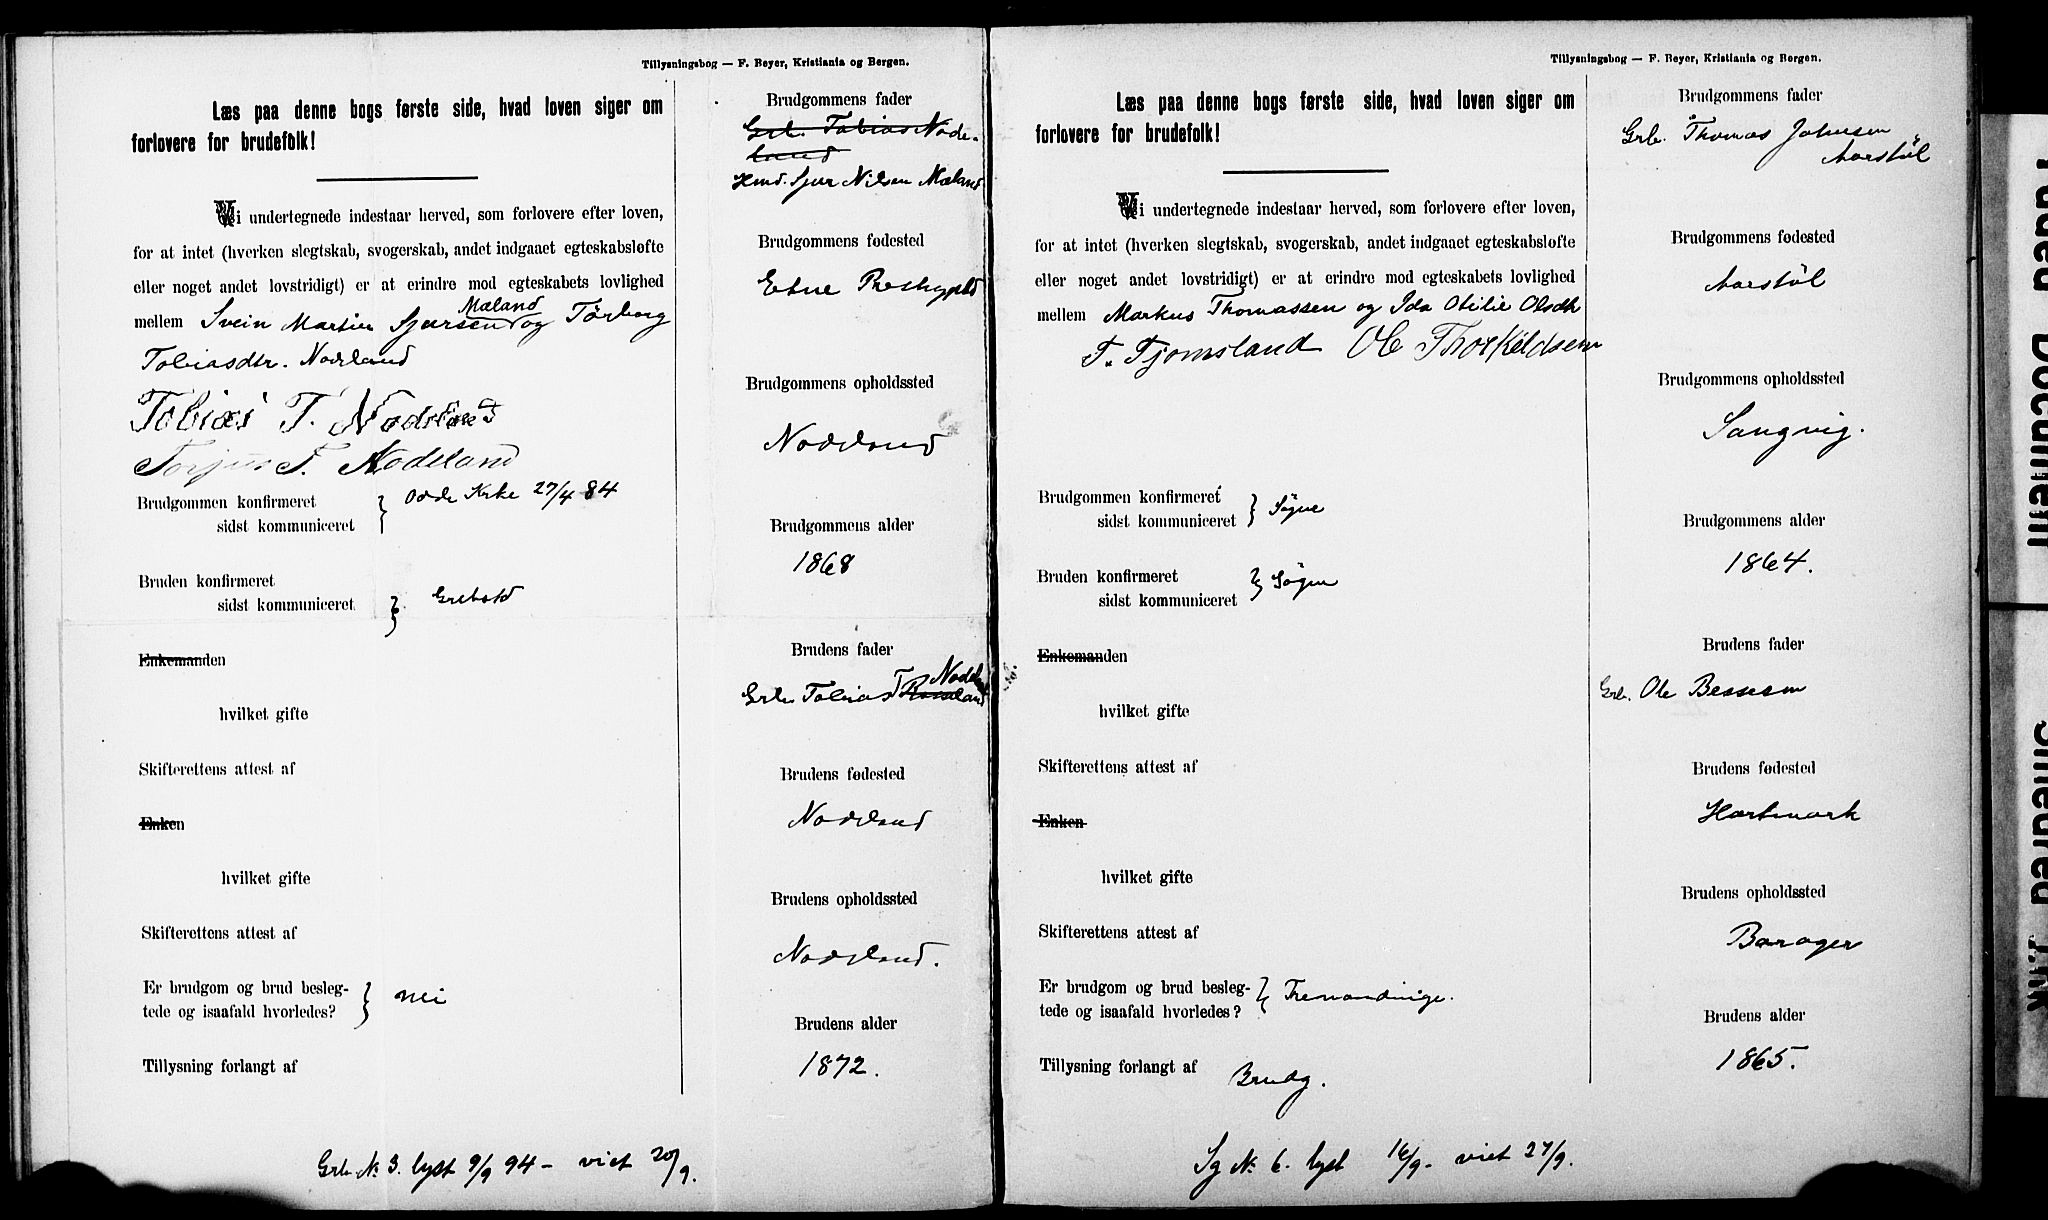 Tillysningsbog — F. Beyer, Kristiania og Bergen.
Læs paa denne bogs første side, hvad loven siger om
forlovere for brudefolk!
Vi undertegnede indestaar herved, som forlovere efter loven,
for at intet (hverken slegtskab, svogerskab, andet indgaaet egteskabsløfte
eller noget andet lovstridigt) er at erindre mod egteskabets lovlighed
Mæland
mellem Svein Martin Sjursen og Tørborg
Tobiasdtr. Nodeland
Tobias T. Nodeland
Torjus T. Nodeland
Brudgommen konfirmeret
sidst kommuniceret } Kirke 27/4 84
Bruden konfirmeret
sidst kommuniceret }
Enkemanden
hvilket gifte
Skifterettens attest af
Enken
hvilket gifte
Skifterettens attest af
Er brudgom og brud besleg-
tede og isaafald hvorledes? } nei
Tillysning forlangt af
Brudgommens fader
Grb. Tobias Node-
land
Hmd. Sjur Nilsen Mæland
Brudgommens fødested
Etne
Brudgommens opholdssted
Nodeland
Brudgommens alder
1868
Brudens fader
T Nodeland
Grb. Tobias
Brudens fødested
Nodeland
Brudens opholdssted
Nodeland.
Brudens alder
1872.
Grb. N: 3. lyst 9/9 94 — viet 20/9.
Tillysningsbog — F. Beyer, Kristiania og Bergen.
Læs paa denne bogs første side, hvad loven siger om
forlovere for brudefolk!
Vi undertegnede indestaar herved, som forlovere efter loven,
for at intet (hverken slegtskab, svogerskab, andet indgaaet egteskabsløfte
eller noget andet lovstridigt) er at erindre mod egteskabets lovlighed
mellem Markus Thomassen og Ida Otilie Olsdtr
T. Tjomsland Ole Thorkildsen
Brudgommen konfirmeret
sidst kommuniceret } Søgne
Bruden konfirmeret
sidst kommuniceret } Søgne
Enkemanden
hvilket gifte
Skifterettens attest af
Enken
hvilket gifte
Skifterettens attest af
Er brudgom og brud besleg-
tede og isaafald hvorledes? } Tremændinge.
Tillysning forlangt af Brudg.
Brudgommens fader
Grb. Thomas Johnsen
Aarstøl
Brudgommens fødested
Aarstøl
Brudgommens opholdssted
Sangvig.
Brudgommens alder
1864.
Brudens fader
Grb. Ole Bessesen
Brudens fødested
Hartmark
Brudens opholdssted
Borøger
Brudens alder
1865.
Sg N: 6. lyst 16/9 — viet 27/9.